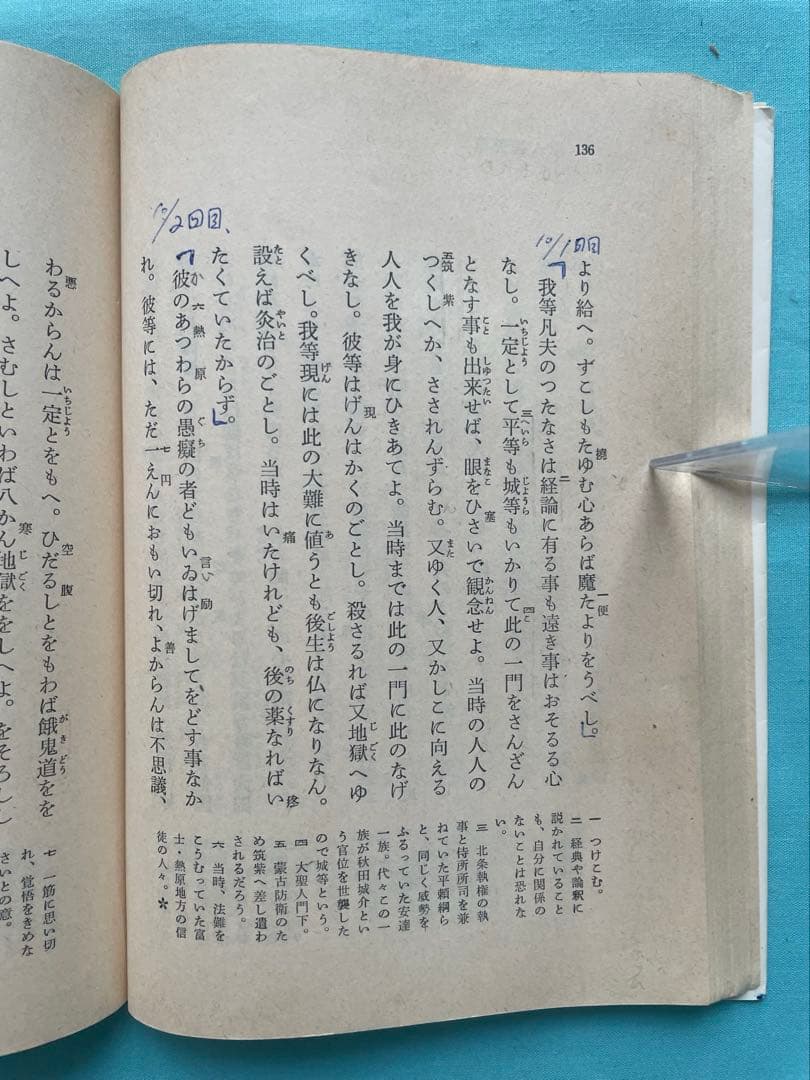 136
10/1回目
より給へ。ずこしもたゆむ心あらば魔たよりをうべし。」
「我等凡夫のつたなさは経論に有る事も遠き事はおそるる心
なし。一定として平等も城等もいかりて此の一門をさんざん
となす事も出来せば、眼をひさいで観念せよ。当時の人人の
つくしへか、さされんずらむ。又ゆく人、又かしこに向える
人人を我が身にひきあてよ。当時までは此の一門に此のなげ
きなし。彼等はげんはかくのごとし。殺さるれば又地獄へゆ
くべし。我等現には此の大難に値うとも後生は仏になりなん。
設えば灸治のごとし。当時はいたけれども、後の薬なればい
たくていたからず。」
10/2回目、
「彼のあつわらの愚癡の者どもいゐはげましてをどす事なか
れ。彼等には、ただ一えんにおもい切れ、よからんは不思議、
一 つけこむ。
二 経典や論釈に
説かれていること
も、自分に関係の
ないことは恐れな
い。
三 北条執権の執
事と侍所所司を兼
ねていた平頼綱ら
と、同じく威勢を
ふるっていた安達
一族。代々この一
族が秋田城介とい
う官位を世襲した
ので城等という。
四 大聖人門下。
五 蒙古防衛のた
め筑紫へ差し遣わ
されるだろう。
六 当時、法難を
こうむっていた富
士・熱原地方の信
徒の人々。＊
わるからんは一定とをもへ。ひだるしとをもわば餓鬼道をを
しへよ。さむしといわば八かん地獄ををしへよ。をそろしし
七 一筋に思い切
れ、覚悟をきめな
さいとの意。